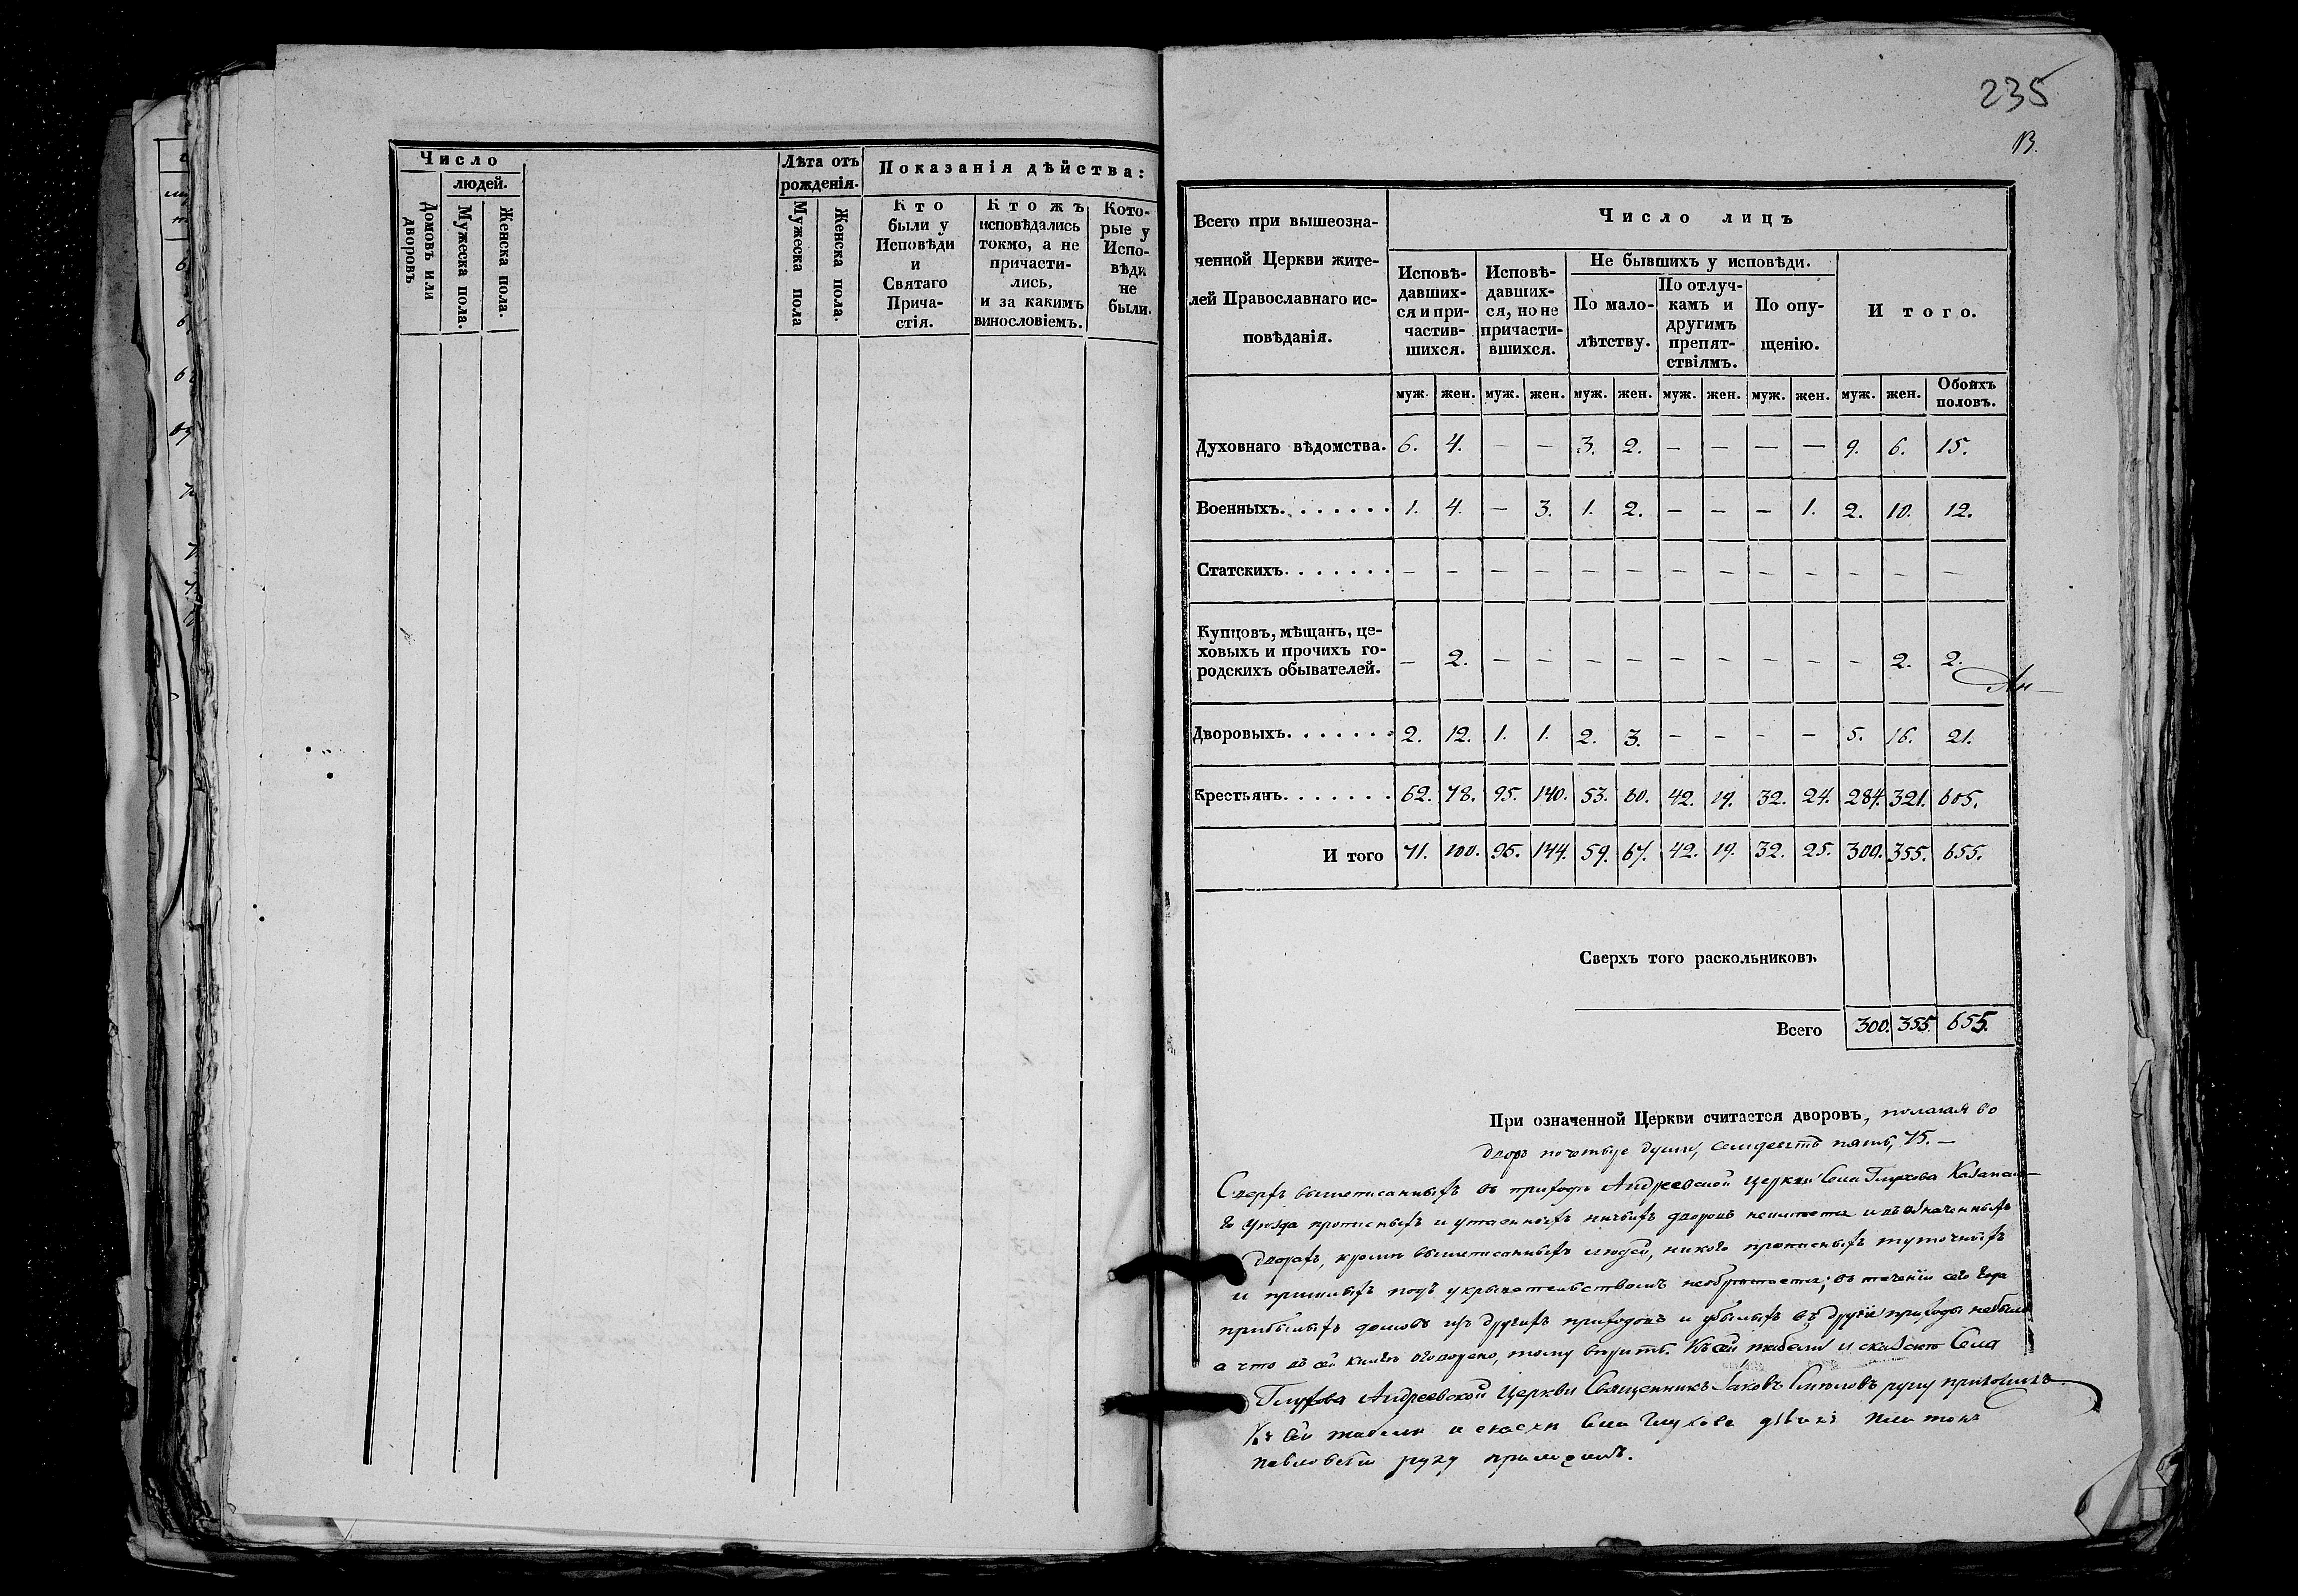 Число
людей.
Домовъ или дворовъ
Мужеска пола.
Женска пола.
Лѣта отъ рожденія.
Мужеска пола
Женска пола.
Показанія дѣйства:
Кто
были у
Исповѣди
и
Святаго
Прича-
стія.
Кто жъ
исповѣдались
токмо, а не
причасти-
лись,
и за какимъ
винословіемъ.
Кото-
рые у
Испо-
вѣди
не
были.
235
В.
Всего при вышеозна-
ченной Церкви жите-
лей Православнаго ис-
повѣданія.
Число лицъ
Исповѣ-
давших-
ся и при-
частив-
шихся.
Исповѣ-
давших-
ся, но не
причасти-
вшихся.
Не бывшихъ у исповѣди.
По мало-
лѣтству.
По отлуч-
камъ и
другимъ
препят-
ствіямъ.
По опу-
щенію.
Итого.
муж. жен. муж. жен. муж. жен. муж. жен. муж. жен. муж. жен. Обоихъ половъ.
Духовнаго вѣдомства. 6. 4. — — 3. 2. — — — — 9. 6. 15.
Военныхъ. . . . . . . . 1. 4. — 3. 1. 2. — — — 1. 2. 10. 12.
Статскихъ. . . . . . . — — — — — — — — — — — — —
Купцовъ, мѣщанъ, це-
ховыхъ и прочихъ го-
родскихъ обывателей. — 2. — — — — — — — — — 2. 2.
Дворовыхъ. . . . . . . 2. 12. 1. 1. 2. 3. — — — — 5. 16. 21.
Крестьянъ. . . . . . . 62. 78. 95. 140. 53. 60. 42. 19. 32. 24. 284. 321. 605.
И того 71. 100. 96. 144. 59. 67. 42. 19. 32. 25. 300. 355. 655.
Сверхъ того раскольниковъ
Всего 300. 355. 655.
При означенной Церкви считается дворовъ, полагая во
дворъ по четыре души, семдесятъ пять, 75. —
Сверхъ вышеписанныхъ въ приходѣ Андреевской церкви Села Глухова Казанска-
го уѣзда прописныхъ и утаенныхъ ничьихъ дворовъ неимѣется и въ означенныхъ
дворахъ, кромѣ вышеписанныхъ людей, никого прописныхъ туточныхъ
и пришлыхъ подъ укрывательствомъ необрѣтается; въ теченіи сего года
прибылыхъ домовъ изъ другихъ приходовъ и убылыхъ въ другіе приходы небыло
а что въ сей книгѣ оговорено, тому вѣрить. Къ сей табели и сказкѣ Села
Глухова Андреевской Церкви Священникъ Іаковъ руку приложилъ.
Къ сей табели и скаски села Глухова руку приложилъ.